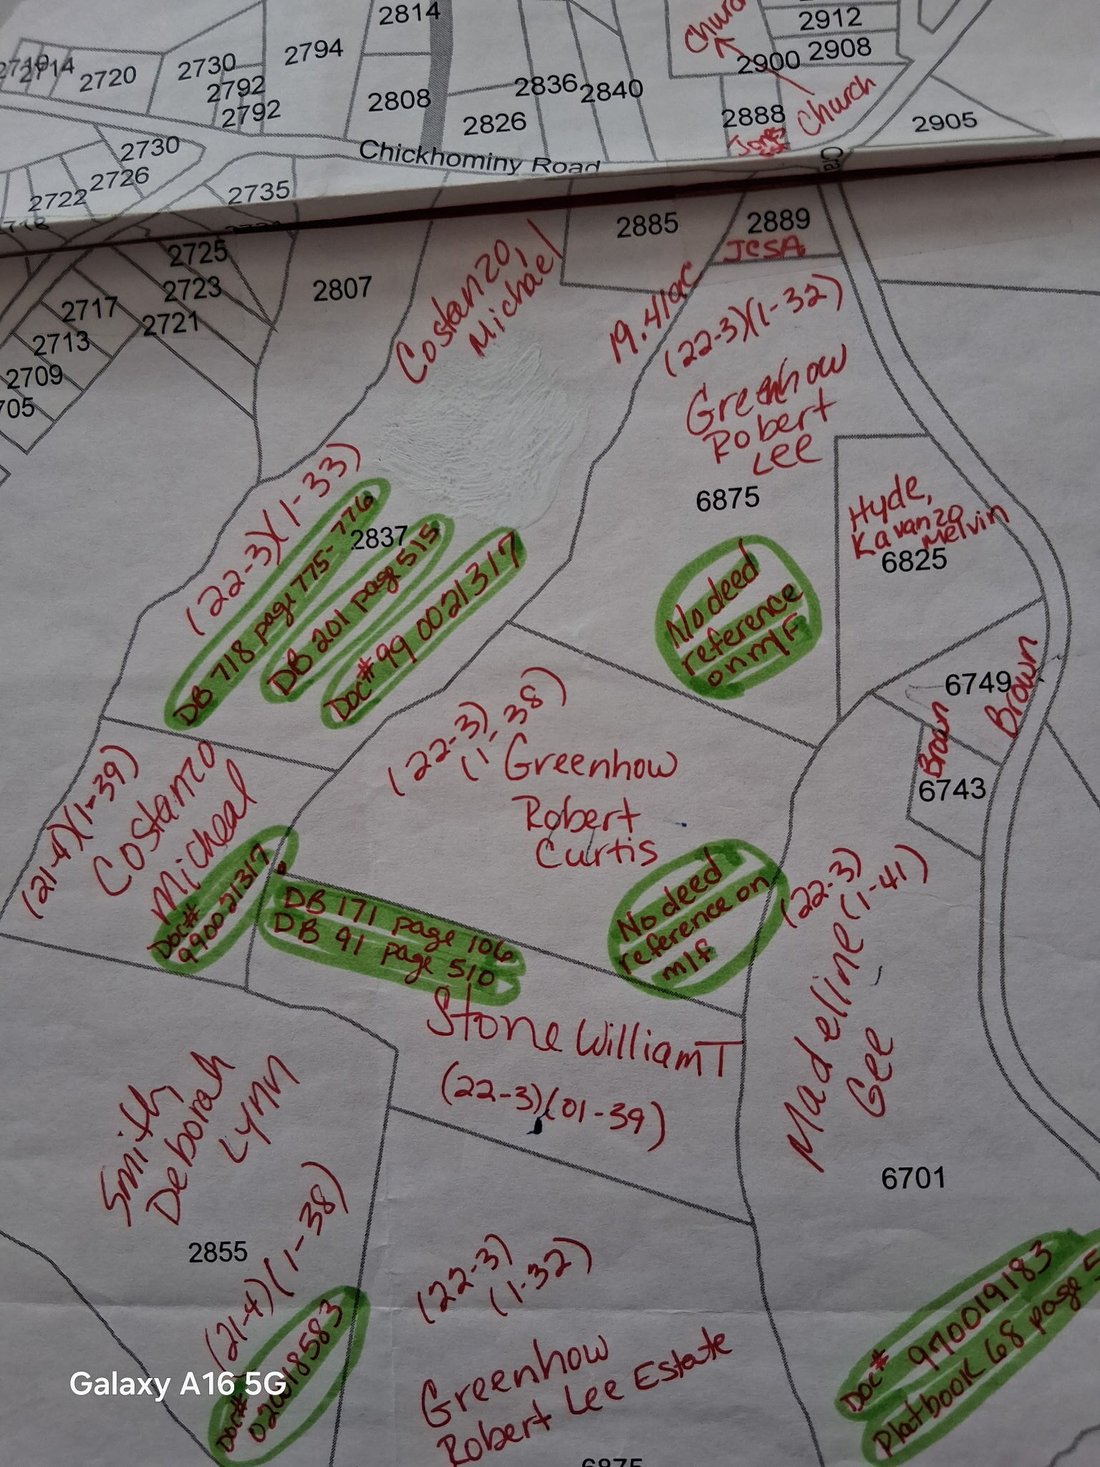 2814
2912
2794
2908
2730
2900
2714
2720
2792
2836
2840
2808
2792
2826
2888
Church
Church
2905
2730
Chickhominy Road
2726
2722
2735
2885
2889
JCSA
2725
2723
2807
2717
2721
2713
2709
705
Costanzo,
Michael
19.41ac
(22-3)(1-32)
Greenhow
Robert
Lee
6875
Hyde,
Kavanzo
Melvin
6825
(22-3)(1-33)
2837
DB 718 page 775-776
DB 201 page 515
Doc# 99 0021317
No deed
reference
on m/F
6749
Brown
Brown
6743
(22-3)
(1-38)
Greenhow
Robert
Curtis
(21-4)(1-39)
Costanzo
Micheal
Doc#
990021317
DB 171 page 106
DB 91 page 510
No deed
reference on
m/f
(22-3)
(1-41)
Madeline
Gee
6701
Stone William T
(22-3)(01-39)
Smith
Deborah
Lynn
2855
(21-4)(1-38)
Doc#
020018583
(22-3)
(1-32)
Greenhow
Robert Lee Estate
6875
Doc# 970019183
Platbook 68 page 5
Galaxy A16 5G